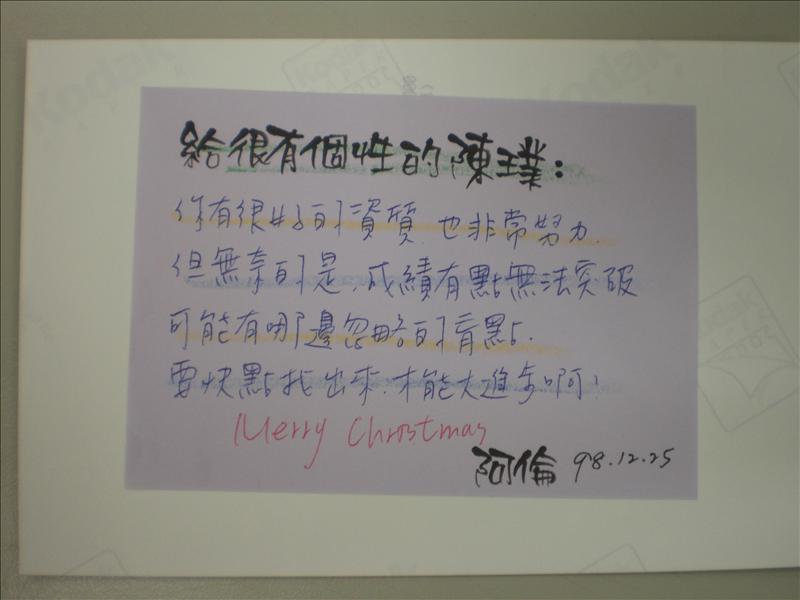 給很有個性的陳璞：
你有很好的資質.也非常努力.
但無奈的是,成績有點無法突破
可能有哪邊忽略的盲點.
要快點找出來.才能大進步啊!
Merry Christmas
阿倫 98.12.25
Kodak
Kodak
Kodak
Kodak